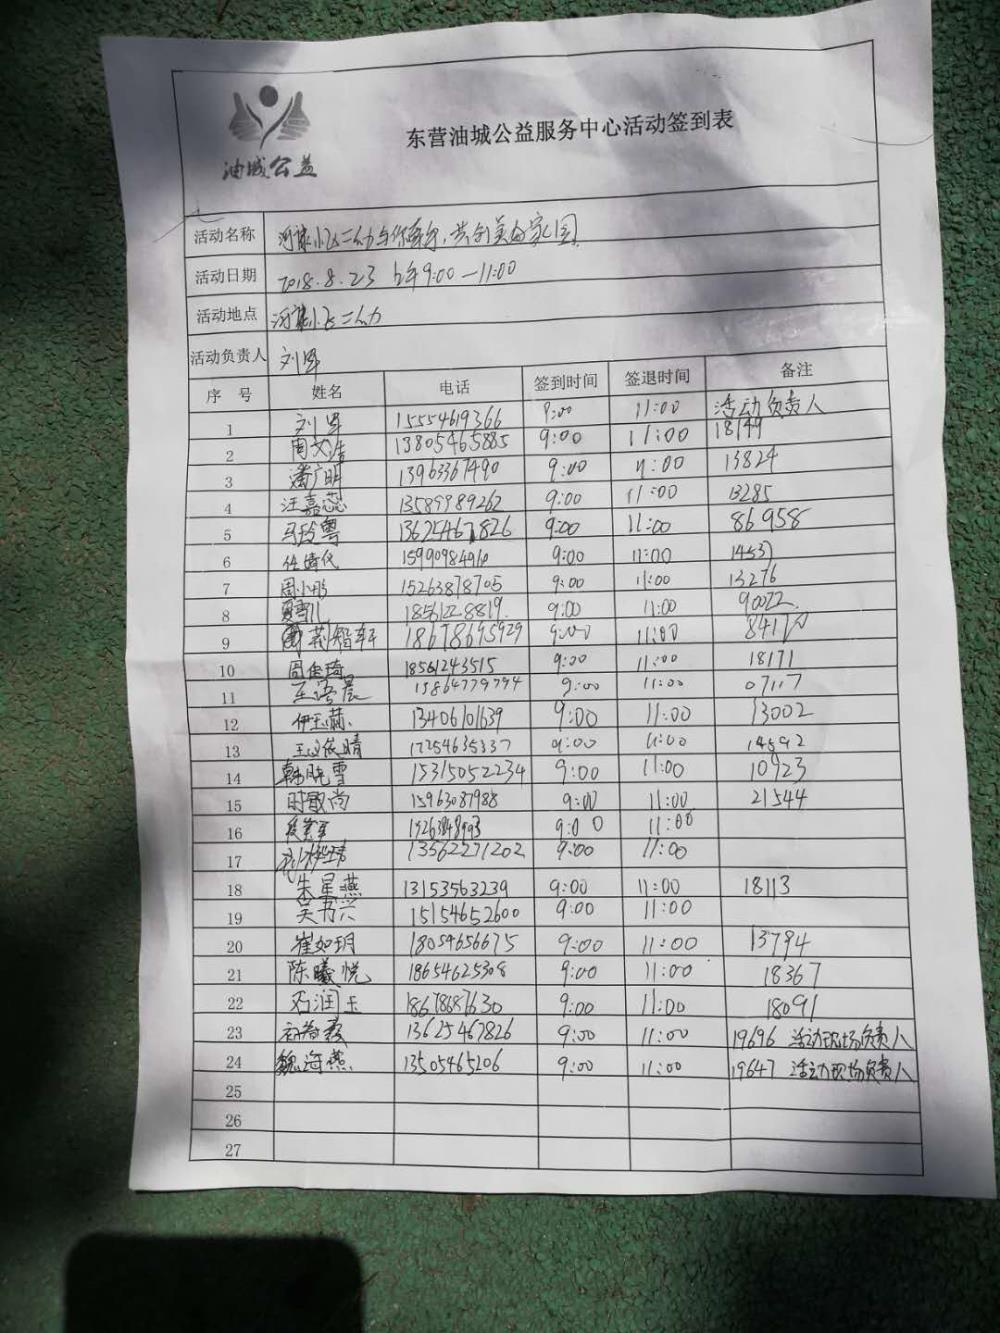 油城公益
东营油城公益服务中心活动签到表
活动名称
活动日期 2018.8.23 上午9:00—11:00
活动地点
活动负责人 刘军
序 号 姓名 电话 签到时间 签退时间 备注
1 刘军 15554619366 9:00 11:00 活动负责人
2 周文浩 13805465885 9:00 11:00 18149
3 潘广明 13963367490 9:00 11:00 13824
4 汪嘉蕊 13589989262 9:00 11:00 13285
5 马玲粤 13625467826 9:00 11:00 86958
6 15990984960 9:00 11:00 14537
7 周小彤 15263878705 9:00 11:00 13276
8 18561228819 9:00 11:00 90022
9 荆智轩 18678695929 9:00 11:00
10 周佳琦 18561243515 9:00 11:00 18171
11 15864779794 9:00 11:00 07117
12 伊玉蘭 13406101639 9:00 11:00 13002
13 9:00 11:00 14592
14 韩晓雪 15315052234 9:00 11:00 10923
15 时敬尚 15963087988 9:00 11:00 21544
16 9:00 11:00
17 13562271202 9:00 11:00
18 朱星燕 13153563239 9:00 11:00 18113
19 15154652600 9:00 11:00
20 崔如玥 18054656675 9:00 11:00 13794
21 陈曦悦 18654625308 9:00 11:00 18367
22 石润玉 18678687630 9:00 11:00 18091
23 13625467826 9:00 11:00 19696 活动现场负责人
24 魏海燕 13505465206 9:00 11:00 19647 活动现场负责人
25
26
27